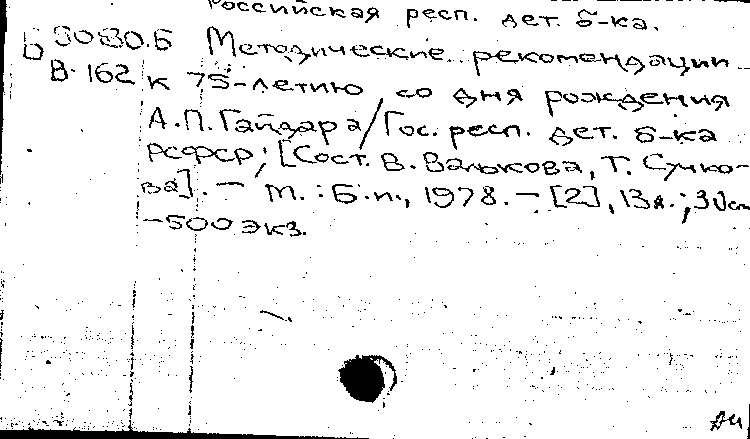 Российская респ. дет. б-ка.
Б 8080.Б Методические рекомендации
В-162 к 75-летию со дня рождения
А.П. Гайдара/Гос. респ. дет. б-ка
РСФСР; [Сост. В. Валькова, Т. Сучко-
ва]. — М. : Б.и., 1978. — [2], 13 л.; 30 см
—500 экз.